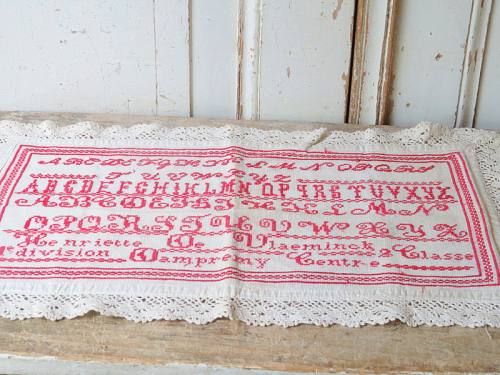 ABCDEFGHIJKLMNOPQRS
TUVWXYZ
ABCDEFGHIKLMNOPQRSTUVXYZ
ABCDEFGHIKLMN
OPQRSTUVWXYZ
Henriette De Vlaeminck 2 Classe
1e division Dampremy Centre